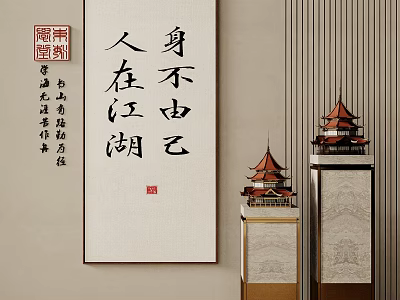 身不由己
人在江湖
书山有路勤为径
学海无涯苦作舟